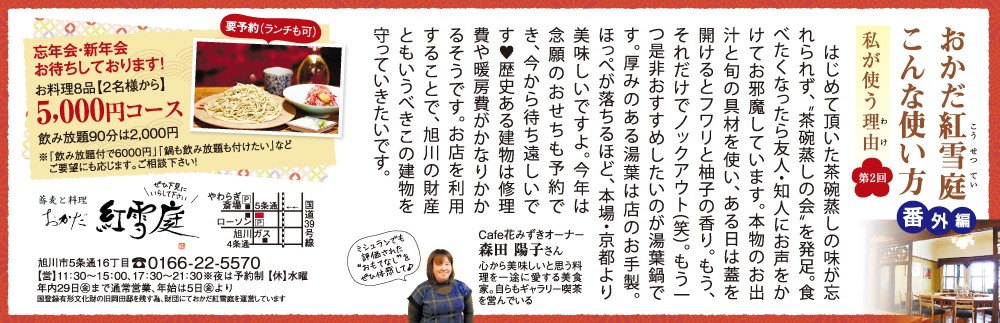 おかだ紅雪庭
こうせつてい
こんな使い方
番外編
私が使う理由
わけ
第2回
はじめて頂いた茶碗蒸しの味が忘
れられず、“茶碗蒸しの会”を発足。食
べたくなったら友人・知人にお声をか
けてお邪魔しています。本物のお出
汁と旬の具材を使い、ある日は蓋を
開けるとフワリと柚子の香り。もう、
それだけでノックアウト(笑)。もう一
つ是非おすすめしたいのが湯葉鍋で
す。厚みのある湯葉は店のお手製。
ほっぺが落ちるほど、本場・京都より
美味しいですよ。今年は
念願のおせちも予約で
き、今から待ち遠しいで
す♥歴史ある建物は修理
費や暖房費がかなりかか
るそうです。お店を利用
することで、旭川の財産
ともいうべきこの建物を
守っていきたいです。
Cafe花みずきオーナー
森田 陽子さん
心から美味しいと思う料
理を一途に愛する美食
家。自らもギャラリー喫茶
を営んでいる
ミシュランでも
評価された
“おもてなし”を
ぜひ体感して♪
要予約(ランチも可)
忘年会・新年会
お待ちしております!
お料理8品【2名様から】
5,000円コース
飲み放題90分は2,000円
※「飲み放題付で6000円」「鍋も飲み放題も付けたい」など
ご要望にも応じます。ご相談下さい!
ぜひ下見に
いらして下さい
蕎麦と料理
おかだ
紅雪庭
やわらぎ
斎場
P
5条通
ローソン
P
旭川ガス
4条通
国道39号線
旭川市5条通16丁目 ☎0166-22-5570
【営】11:30~15:00、17:30~21:30※夜は予約制【休】水曜
年内29日㊎まで通常営業、年始は5日㊎より
国登録有形文化財の旧岡田邸を残す為、財団にておかだ紅雪庭を運営しています